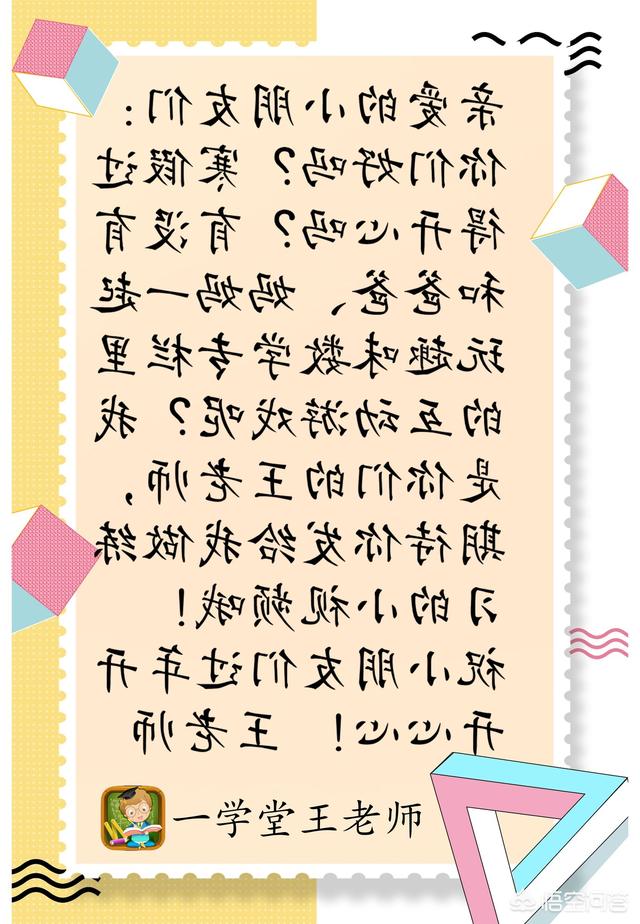 亲爱的小朋友们：
你们好吗？寒假过
得开心吗？有没有
和爸爸、妈妈一起
玩趣味数学专栏里
的互动游戏呢？我
是你们的王老师，
期待你发给我做练
习的小视频哦！
祝小朋友们过年开
开心心！ 王老师
一学堂王老师
悟空问答